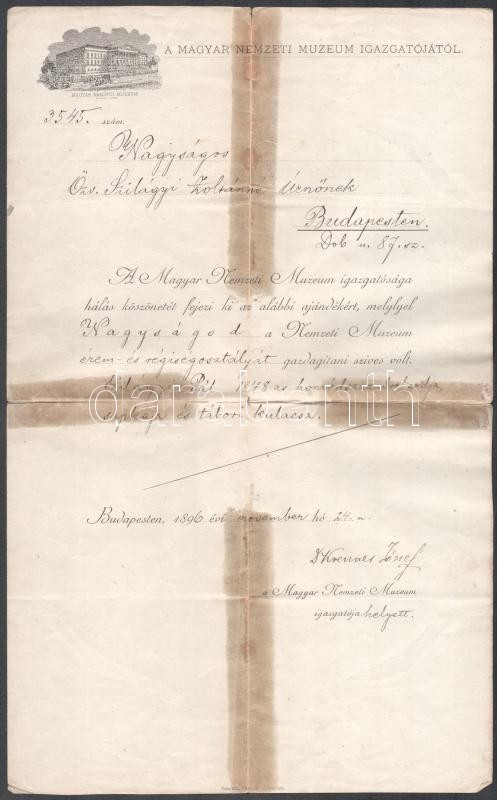 A MAGYAR NEMZETI MUZEUM IGAZGATÓJÁTÓL.
MAGYAR NEMZETI MUZEUM
3545. szám.
Nagyságos
Özv. Szilágyi Zoltánné Úrnőnek
Budapesten.
Dob u. 87. sz.
A Magyar Nemzeti Muzeum igazgatósága
hálás köszönetét fejezi ki az alábbi ajándékért, melylyel
Nagyságod a Nemzeti Muzeum
érem- és régiségosztályát gazdagitani szives volt.
1848 as
sapkája és tábori kulacsz.
Budapesten, 1896 évi november hó 24. n.
Dr Krenner József
a Magyar Nemzeti Muzeum
igazgatója helyett.
darabanth